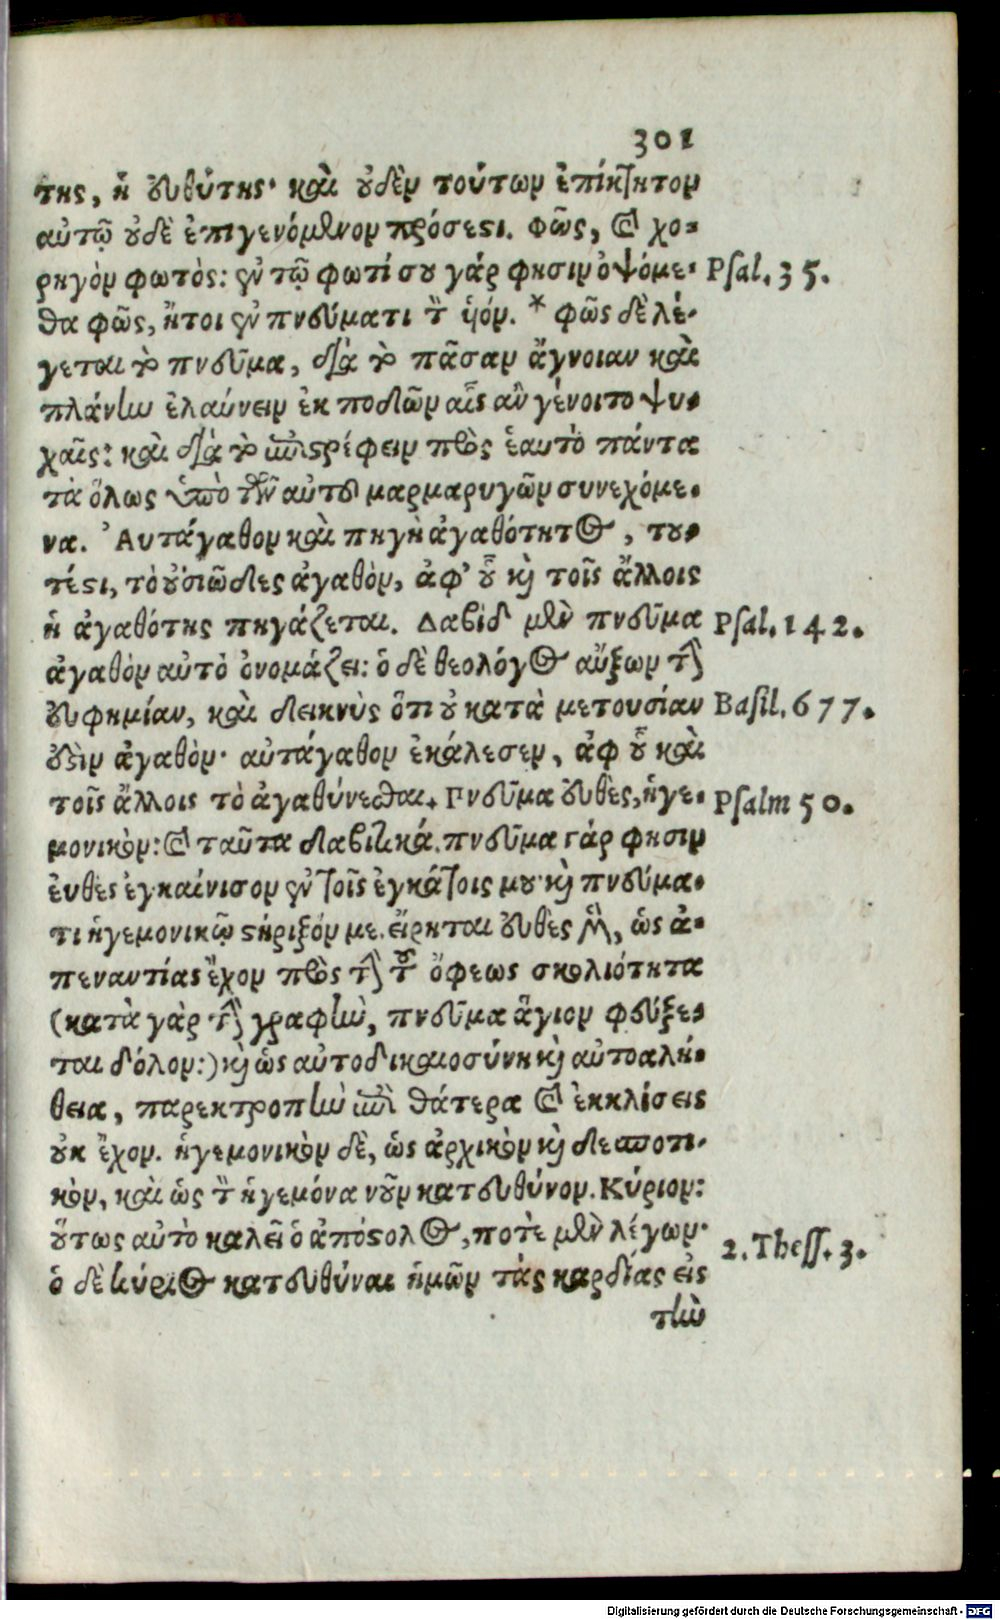 301
της, ἢ εὐθύτης· καὶ οὐδὲν τούτων ἐπίκτητον
αὐτῷ οὐδὲ ἐπιγενόμενον πρόσεστι. φῶς, καὶ χο-
ρηγὸν φωτὸς: ἐν τῷ φωτί σου γάρ φησιν ὀψόμε- Psal. 35.
θα φῶς, ἤτοι ἐν πνεύματι τὸν υἱόν. * φῶς δὲ λέ-
γεται τὸ πνεῦμα, διὰ τὸ πᾶσαν ἄγνοιαν καὶ
πλάνην ἐλαύνειν ἐκ ποδῶν αἷς ἂν γένοιτο ψυ-
χαῖς: καὶ διὰ τὸ ἐπιστρέφειν πρὸς ἑαυτὸ πάντα
τὰ ὅλως ὑπὸ τῶν αὐτοῦ μαρμαρυγῶν συνεχόμε-
να. Ἀυτάγαθον καὶ πηγὴ ἀγαθότητος, του-
τέστι, τὸ οὐσιῶδες ἀγαθὸν, ἀφ' οὗ καὶ τοῖς ἄλλοις
ἡ ἀγαθότης πηγάζεται. Δαβὶδ μὲν πνεῦμα Psal. 142.
ἀγαθὸν αὐτὸ ὀνομάζει: ὁ δὲ θεολόγος αὔξων τὴν
εὐφημίαν, καὶ δεικνὺς ὅτι οὐ κατὰ μετουσίαν Basil. 677.
ἐστὶν ἀγαθὸν· αὐτάγαθον ἐκάλεσεν, ἀφ οὗ καὶ
τοῖς ἄλλοις τὸ ἀγαθύνεσθαι. Πνεῦμα εὐθὲς, ἡγε- Psalm 50.
μονικὸν: καὶ ταῦτα δαβιτικά. πνεῦμα γάρ φησιν
ἐυθὲς ἐγκαίνισον ἐν τοῖς ἐγκάτοις μου· καὶ πνεύμα-
τι ἡγεμονικῷ στήριξόν με. εἴρηται εὐθὲς μὲν, ὡς ἀ-
πεναντίας ἔχον πρὸς τὴν τοῦ ὄφεως σκολιότητα
(κατὰ γὰρ τὴν γραφὴν, πνεῦμα ἅγιον φεύξε-
ται δόλον:) καὶ ὡς αὐτοδικαιοσύνη καὶ αὐτοαλή-
θεια, παρεκτροπὴν ἐπὶ θάτερα καὶ ἐκκλίσεις
οὐκ ἔχον. ἡγεμονικὸν δὲ, ὡς ἀρχικὸν καὶ δεσποτι-
κὸν, καὶ ὡς τὸν ἡγεμόνα νοῦν κατευθύνον. Κύριον:
οὕτως αὐτὸ καλεῖ ὁ ἀπόστολος, ποτὲ μὲν λέγων·
ὁ δὲ κύριος κατευθύναι ἡμῶν τὰς καρδίας εἰς 2. Thess. 3.
τὴν
Digitalisierung gefördert durch die Deutsche Forschungsgemeinschaft - DFG